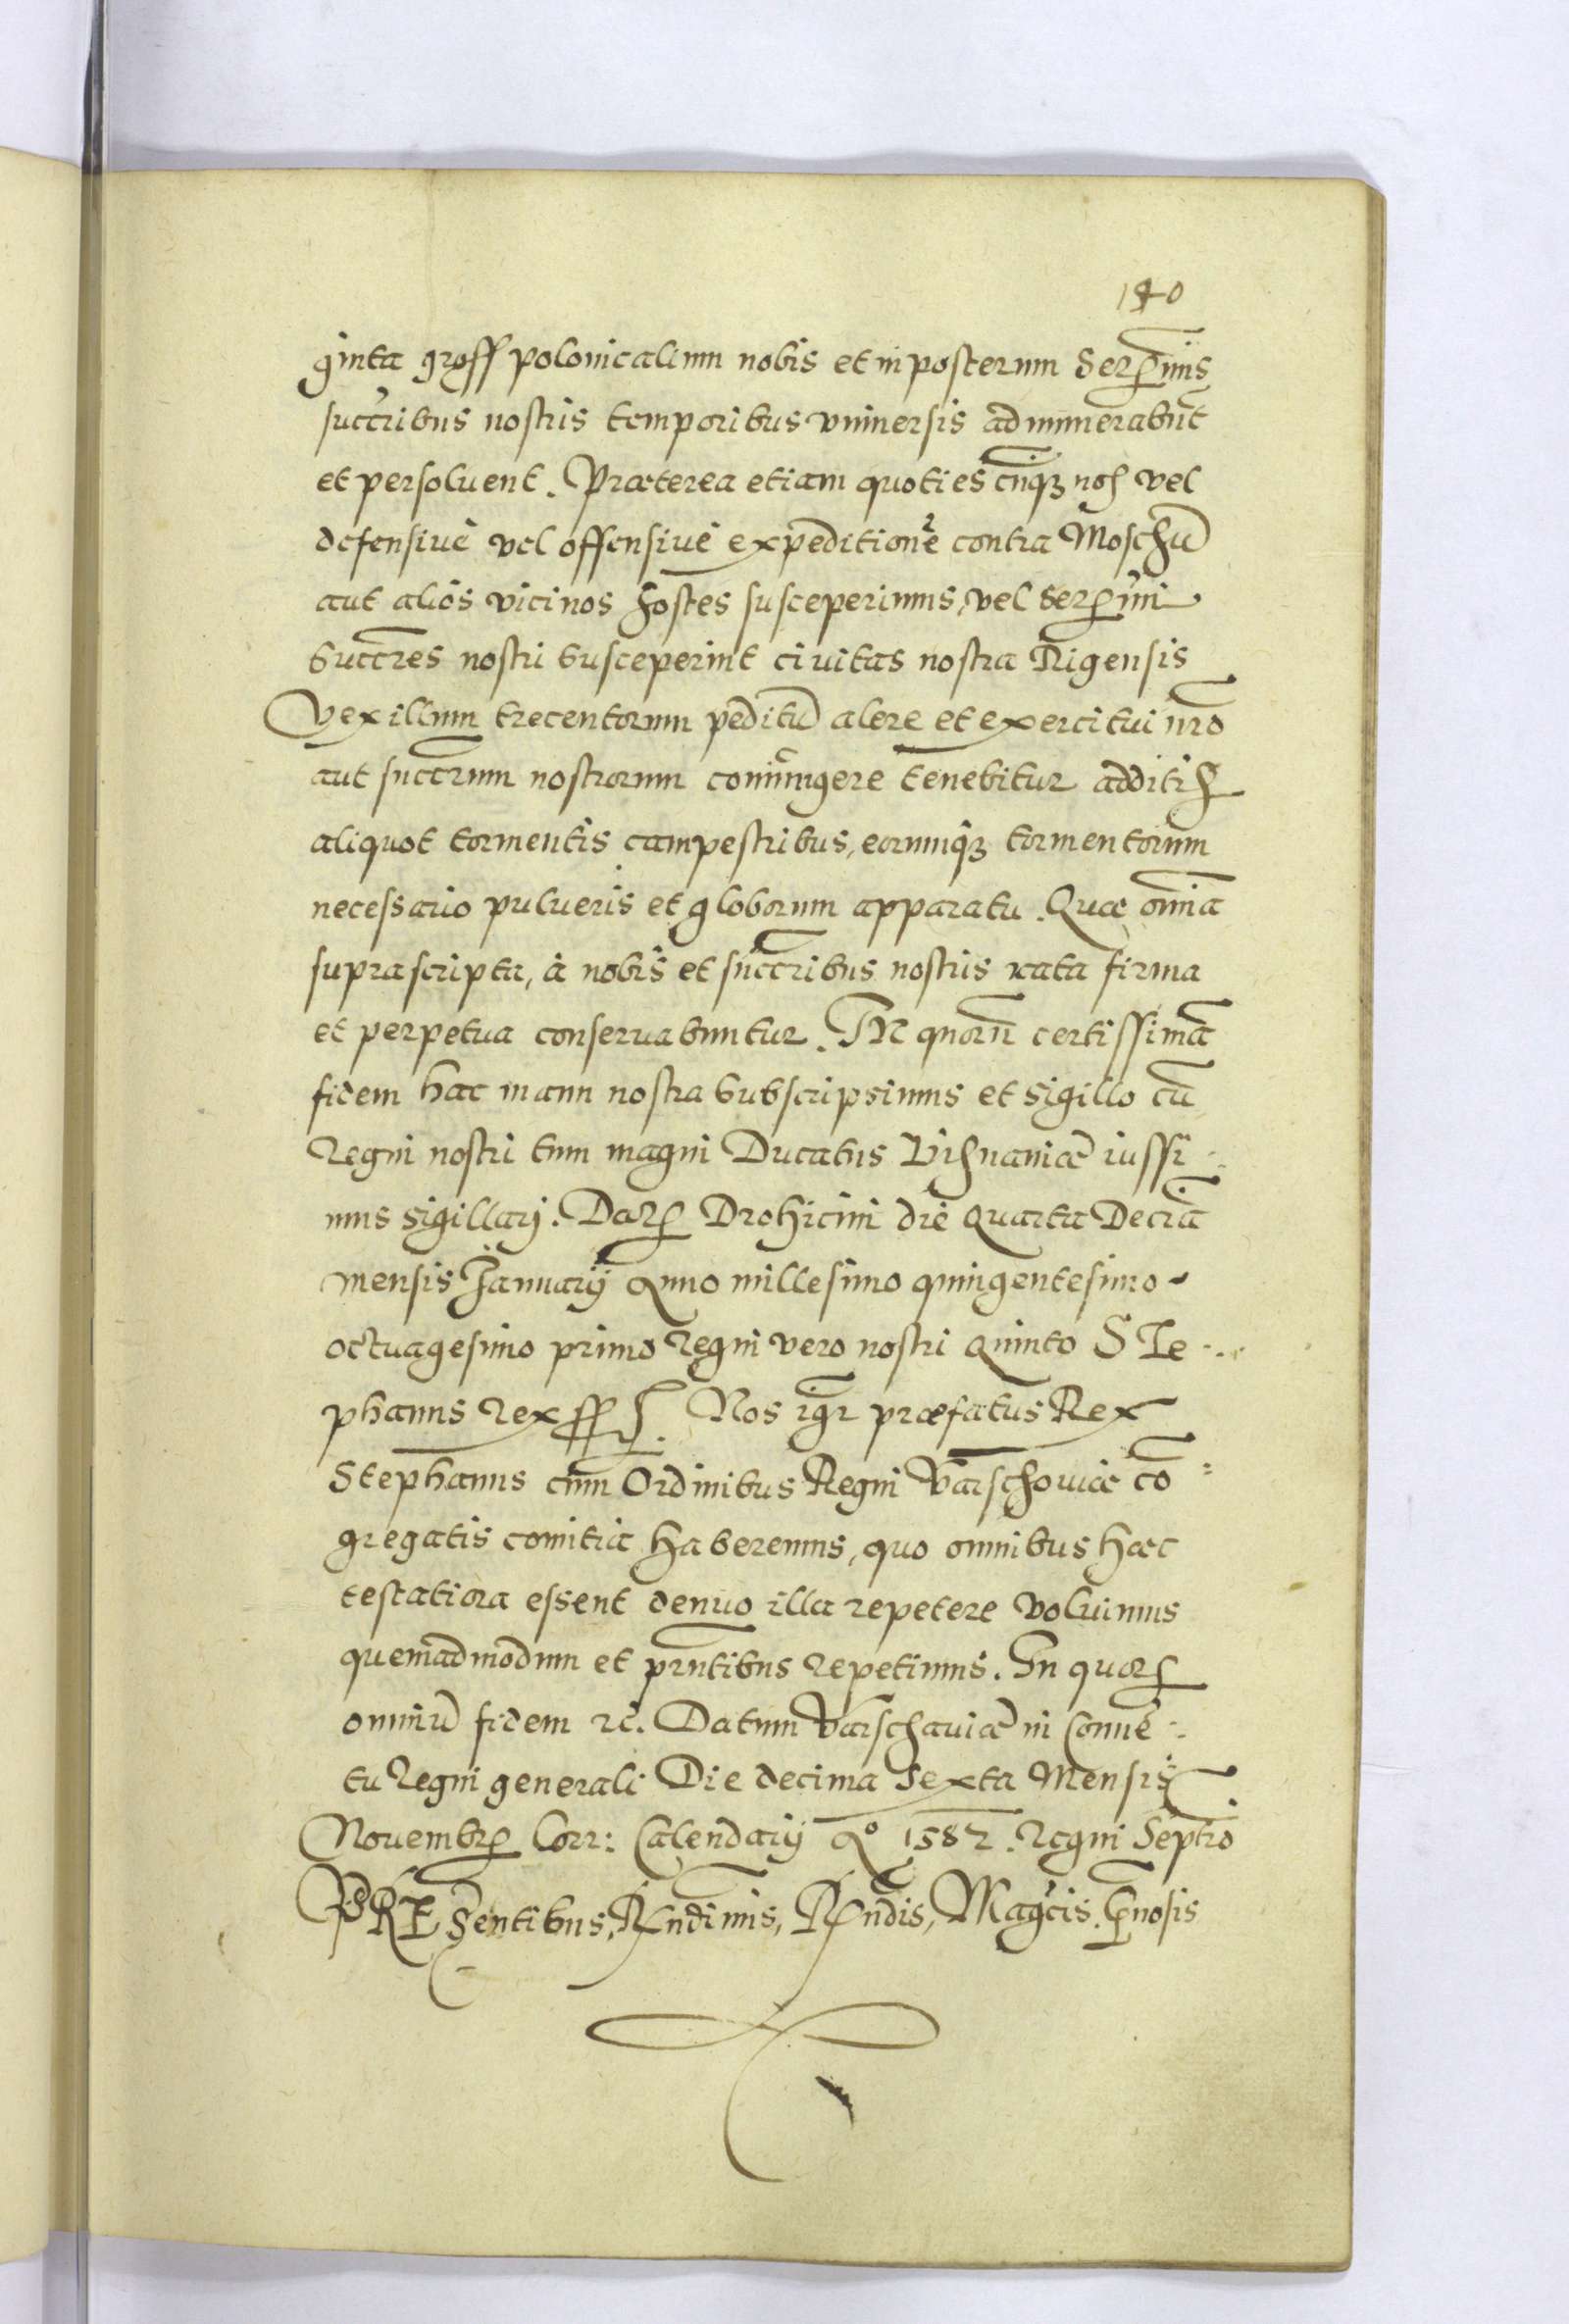 140
ginta gross polonicalium nobis et in posterum Serēmis
succribus nostris temporibus vniuersis adnumerabūt
et persoluent. Præterea etiam quotiescūqꝫ nos vel
defensiuē vel offensiuē expeditionē contra Moschū
aut alios vicinos hostes susceperimus, vel Serēmi
Succres nostri susceperint ciuitas nostra Rigensis
Vexillum trecentorum peditū alere et exercitui nrō
aut succrum nostrorum coniūngere tenebitur additis
aliquot tormentis campestribus, eorumqꝫ tormentorum
necessario pulueris et globorum apparatu. Quæ omīa
suprascripta, à nobis et succribus nostris rata firma
et perpetua conseruabuntur. IN quorū certissimā
fidem hac manu nostra subscripsimus et sigillo cū
Regni nostri tum magni Ducatus Lithuaniæ iussi-
mus sigillarj. Datꝫ Drohicini die quarta Decīa
mensis Januarij Anno millesimo quingentesimo
octuagesimo primo Regni vero nostri Quinto STe-
phanus rex sss. Nos igr præfatus Rex
Stephanus cum Ordinibus Regni Varschouiæ cō=
gregatis comitia haberemus, quo omnibus hæc
testatiora essent denuo illa repetere voluimus
quemadmodum et prntibus repetimus. In quorꝫ
omniū fidem ꝛc. Datum Varschauiæ in Conuē-
tu Regni generali Die decima Sexta Mensis
Nouembrꝫ Corr: Calendarij Aº 1582. Regni Septīo
PRÆSentibus, Rndimis, Rndis, Magcis. Gnosis